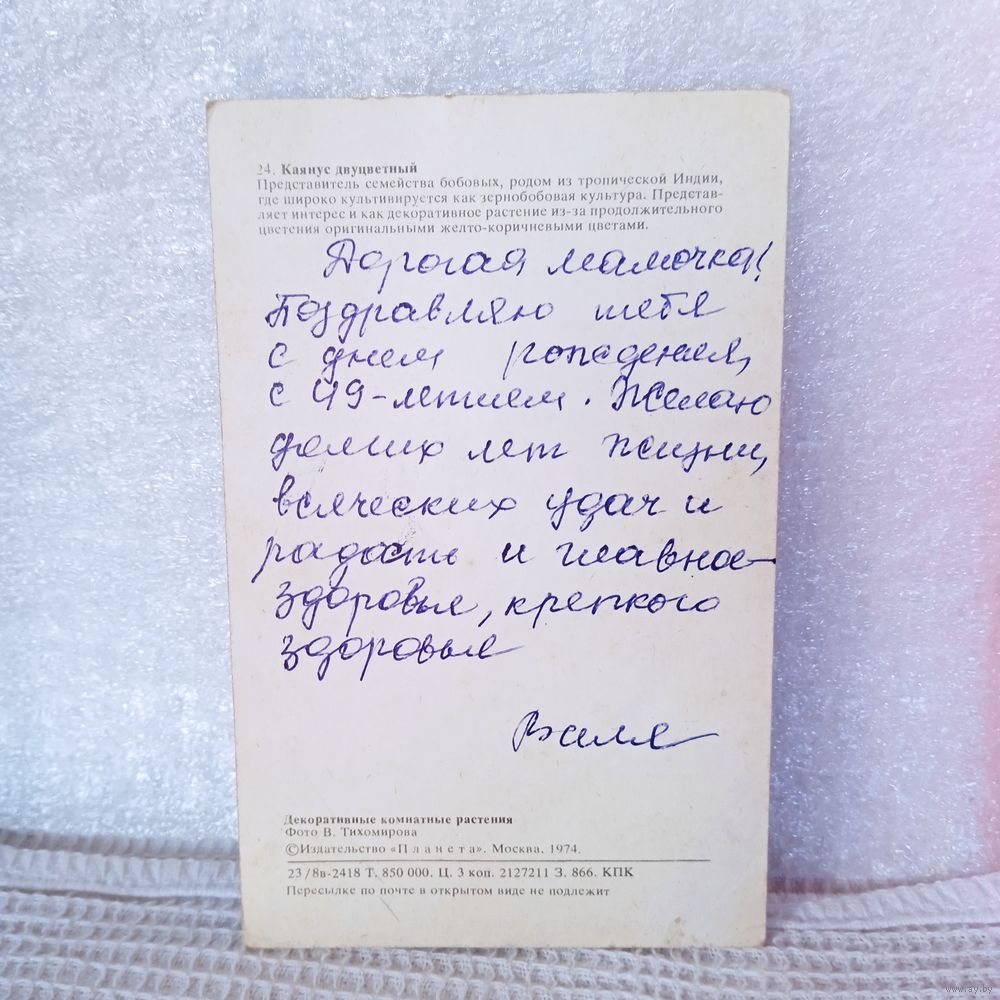 24. Каянус двуцветный
Представитель семейства бобовых, родом из тропической Индии,
где широко культивируется как зернобобовая культура. Представ-
ляет интерес и как декоративное растение из-за продолжительного
цветения оригинальными желто-коричневыми цветами.
Дорогая мамочка!
Поздравляю тебя
с днем рождения,
с 49-летием. Желаю
долгих лет жизни,
всяческих удач и
радость и главное—
здоровья, крепкого
здоровья
Валя
Декоративные комнатные растения
Фото В. Тихомирова
©Издательство «Планета». Москва, 1974.
23/8в-2418 Т. 850 000. Ц. 3 коп. 2127211 З. 866. КПК
Пересылке по почте в открытом виде не подлежит
www.ay.by